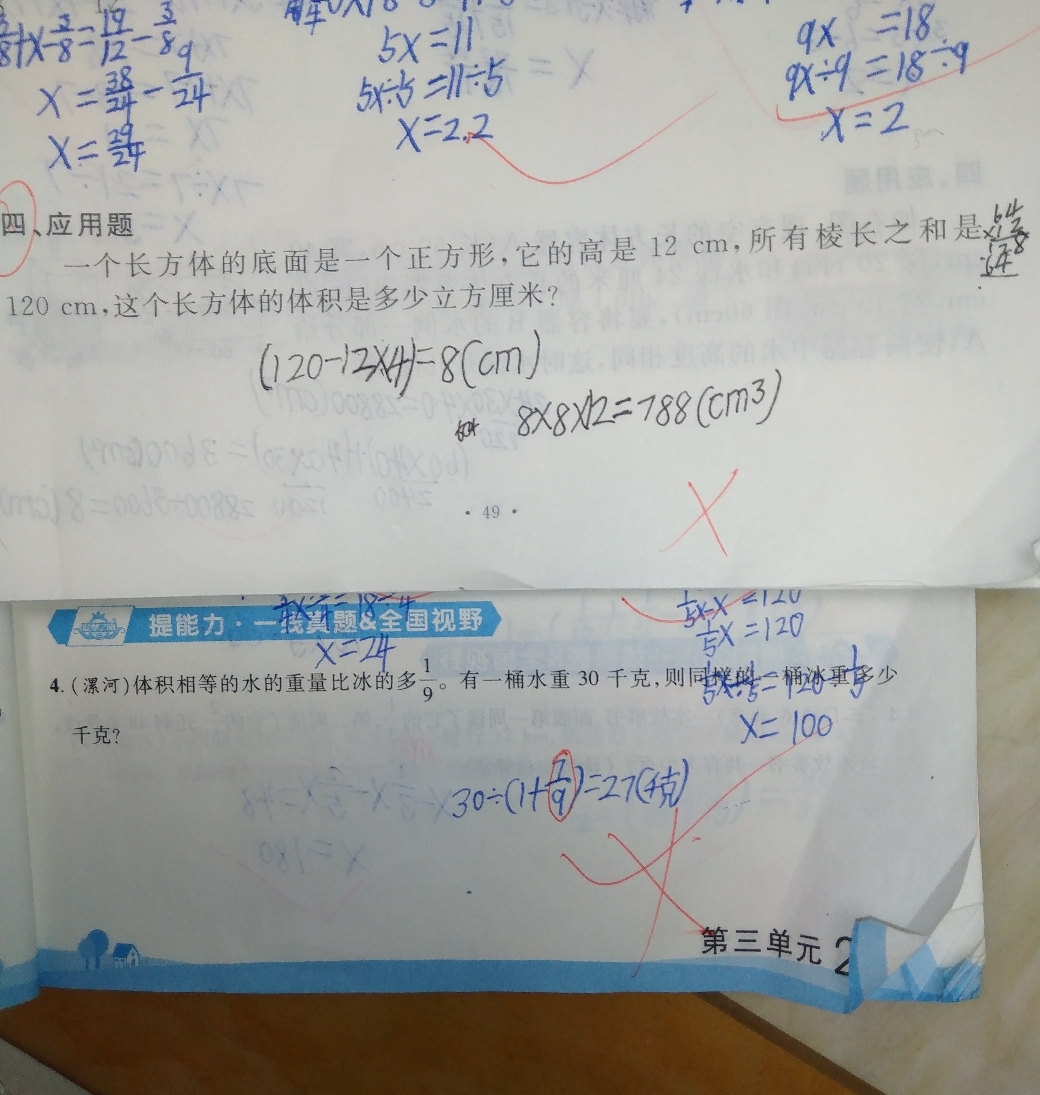 x = 38/24 − 9/24
x = 29/24
5x = 11
5x÷5 = 11÷5
x = 2.2
9x = 18
9x÷9 = 18÷9
x = 2
四、应用题
一个长方体的底面是一个正方形,它的高是 12 cm,所有棱长之和是
120 cm,这个长方体的体积是多少立方厘米?
64
×12
128
64
(120-12×4)=8(cm)
8×8×12=788(cm³)
· 49 ·
提能力·一线真题&全国视野
x=24
1/5x=120
x=100
4. (漯河)体积相等的水的重量比冰的多1/9。有一桶水重 30 千克,则同样的一桶冰重多少
千克?
30÷(1+1/9)=27(千克)
第三单元 2